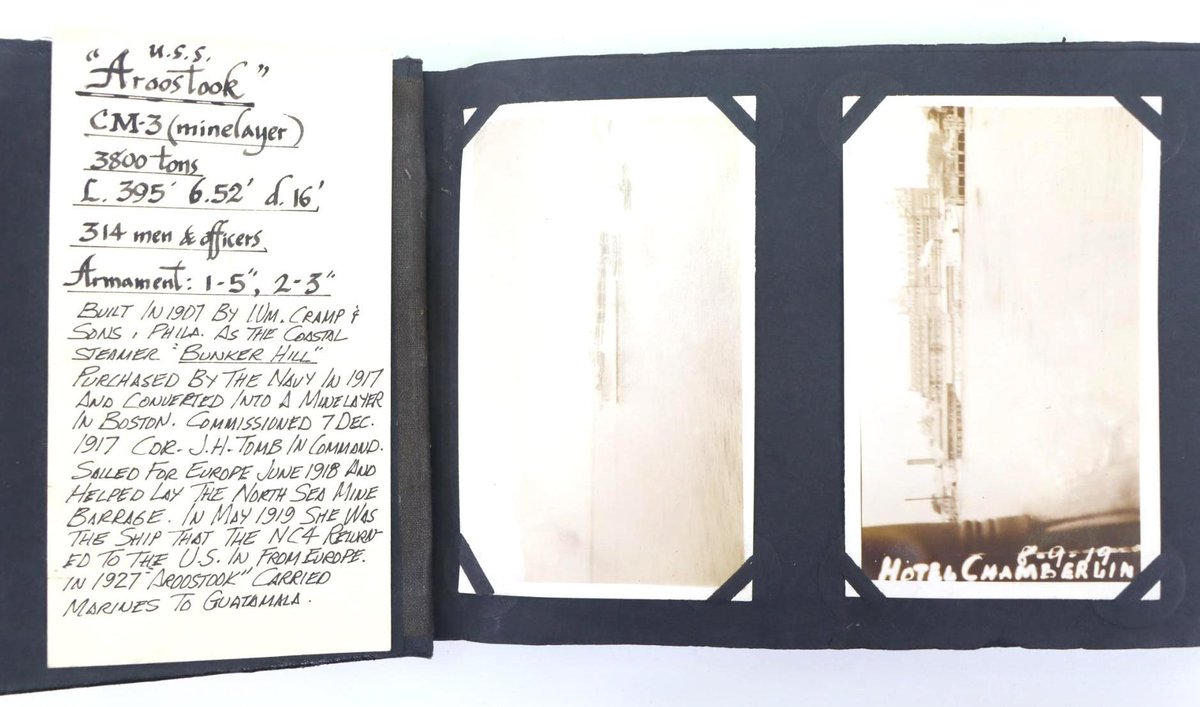 U.S.S.
"Aroostook"
CM-3 (minelayer)
3800 tons
L. 395' 6.52' d. 16'
314 men & officers
Armament: 1-5", 2-3"
BUILT IN 1907 BY WM. CRAMP &
SONS, PHILA. AS THE COASTAL
STEAMER "BUNKER HILL"
PURCHASED BY THE NAVY IN 1917
AND CONVERTED INTO A MINELAYER
IN BOSTON. COMMISSIONED 7 DEC.
1917 CDR. J.H. TOMB IN COMMAND.
SAILED FOR EUROPE JUNE 1918 AND
HELPED LAY THE NORTH SEA MINE
BARRAGE. IN MAY 1919 SHE WAS
THE SHIP THAT THE NC4 RETURN-
ED TO THE U.S. IN FROM EUROPE.
IN 1927 "AROOSTOOK" CARRIED
MARINES TO GUATAMALA.
8-9-19
HOTEL CHAMBERLIN